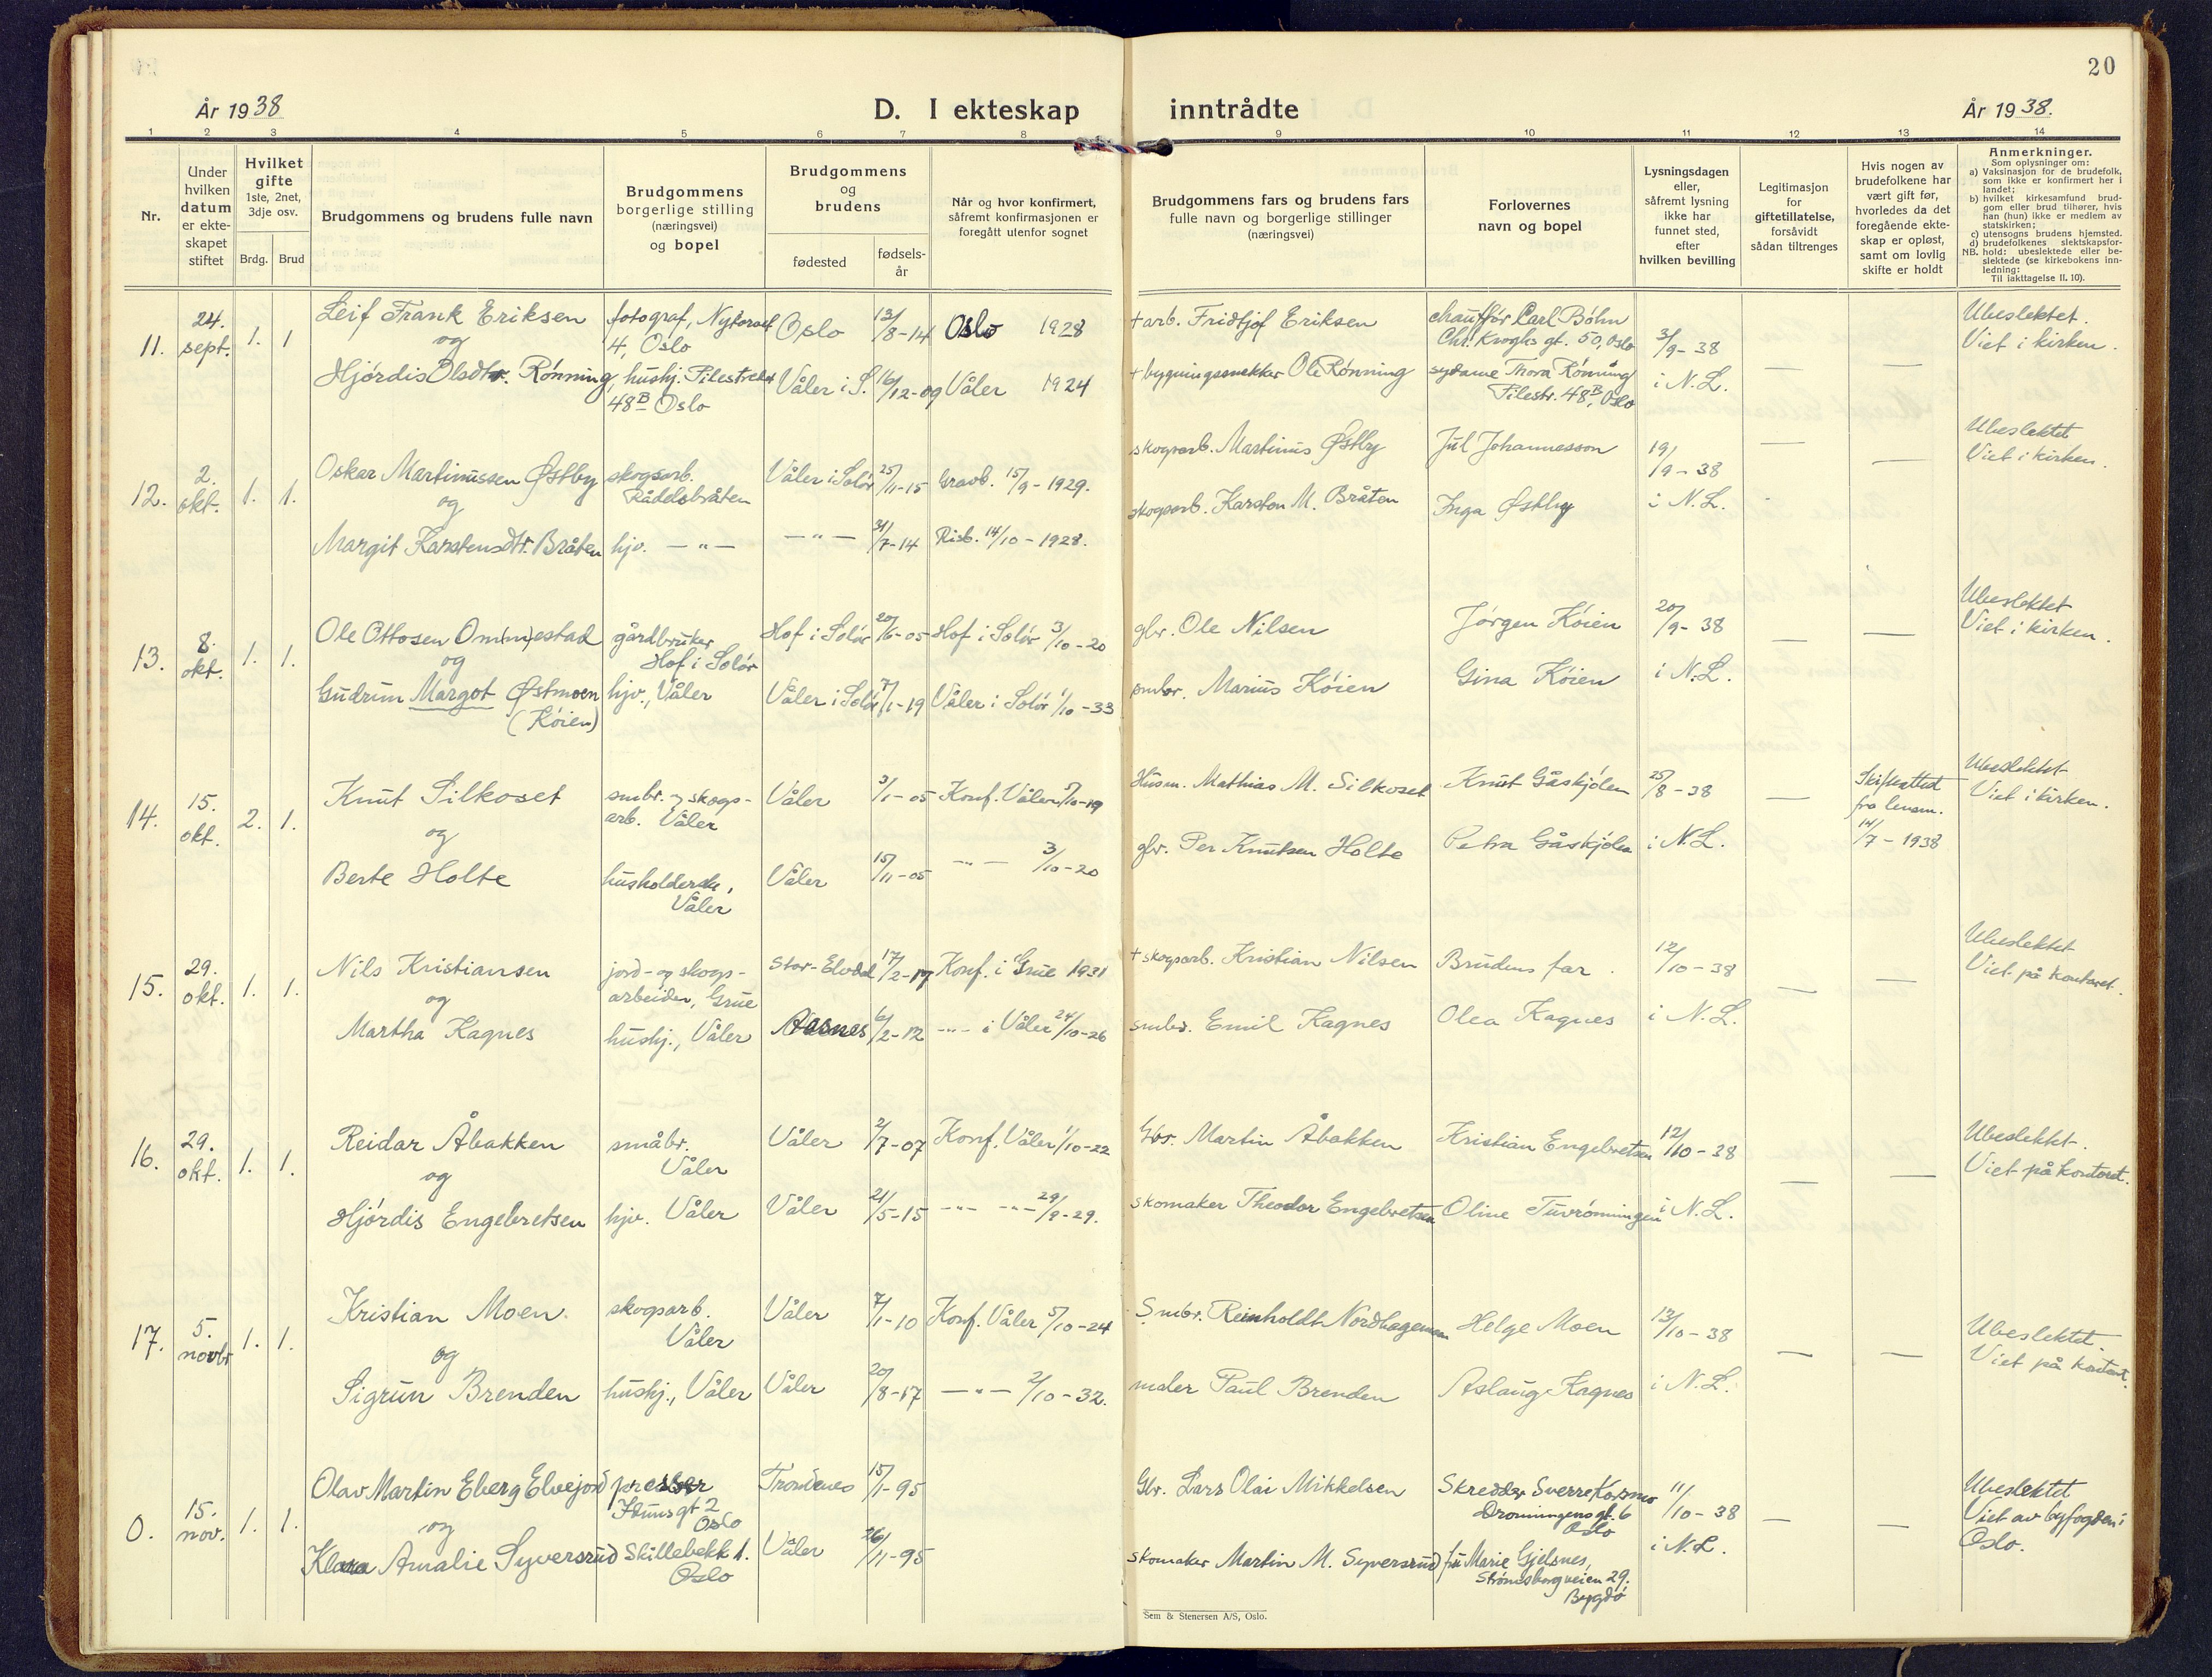 20
År 1938
D. I ekteskap inntrådte
År 1938.
1 2 3 4 5 6 7 8 9 10 11 12 13 14
Nr.
Under hvilken datum er ekteskapet stiftet
Hvilket gifte 1ste, 2net, 3dje osv.
Brdg. Brud
Brudgommens og brudens fulle navn
Brudgommens borgerlige stilling (næringsvei) og bopel
Brudgommens og brudens
fødested
fødselsår
Når og hvor konfirmert, såfremt konfirmasjonen er foregått utenfor sognet
Brudgommens fars og brudens fars fulle navn og borgerlige stillinger (næringsvei)
Forlovernes navn og bopel
Lysningsdagen eller, såfremt lysning ikke har funnet sted, efter hvilken bevilling
Legitimasjon for giftetillatelse, forsåvidt sådan tiltrenges
Hvis nogen av brudefolkene har vært gift før, hvorledes da det foregående ekteskap er opløst, samt om lovlig skifte er holdt
Anmerkninger.
Som oplysninger om:
a) Vaksinasjon for de brudefolk, som ikke er konfirmert her i landet;
b) hvilket kirkesamfund brudgom eller brud tilhører, hvis han (hun) ikke er medlem av statskirken;
c) utensogns brudens hjemsted.
d) brudefolkenes slektskapsforhold: ubeslektede eller beslektede (se kirkebokens innledning:
NB. Til iakttagelse II. 10).
11. 24. sept. 1. 1 Leif Frank Eriksen fotograf, Nytorvet 4, Oslo Oslo 13/8-14 Oslo 1928 + arb. Fridtjof Eriksen chauffør Carl Bøhn Chr. Kroghs gt. 50, Oslo 3/9-38 — — Ubeslektet. Viet i kirken.
og
Hjørdis Olsdtr. Rønning, hushj. Pilestredet 48B Oslo Våler i S. 16/12-09 Våler 1924 + bygningssnekker Ole Rønning sydame Thora Rønning Pilestr. 48B, Oslo i N.L.
12. 2. okt. 1. 1. Oskar Martinussen Østby skogsarb. Råddelsbråten Våler i Solør 25/11-15 Gravb. 15/9-1929. skogsarb. Martinus Østby Jul Johannesson 19/9-38 — — Ubeslektet Viet i kirken.
og
Margit Karstensdtr. Bråten hjv. —"— —"— 31/7-14 Risb. 14/10-1928. skogsarb. Karsten M. Bråten Inga Østby i N.L.
13. 8. okt. 1. 1. Ole Ottosen Om(m)estad gårdbruker Hof i Solør Hof i Solør 20/6-05 Hof i Solør 3/10-20 gbr. Ole Nilsen Jørgen Køien 20/9-38 — — Ubeslektet Viet i kirken.
og
Gudrun Margot Østmoen (Køien) hjv., Våler Våler i Solør 7/1-19 Våler i Solør 1/10-33 smbr. Marius Køien Gina Køien i N.L.
14. 15. okt. 2. 1. Knut Silkoset smbr. og skogsarb. Våler Våler 3/1-05 Konf. Våler 5/10-19 Husm. Mathias M. Silkoset Knut Gåskjølen 25/8-38 — Skifteattest fra lensm. 14/7-1938 Ubeslektet Viet i kirken.
og
Berte Holte husholderske, Våler Våler 15/11-05 —"— 3/10-20 gbr. Per Knutsen Holte Petra Gåskjølen i N.L.
15. 29. okt. 1. 1. Nils Kristiansen jord- og skogsarbeider, Grue Stor-Elvdal 17/2-17 Konf. i Grue 1931 + skogsarb. Kristian Nilsen Brudens far. 12/10-38 — — Ubeslektet Viet på kontoret.
og
Martha Kagnes hushj., Våler Aasnes 6/2-12 —"— i Våler 24/10-26 smbr. Emil Kagnes Olea Kagnes i N.L.
16. 29. okt. 1. 1. Reidar Åbakken småbr. Våler Våler 2/7-07 Konf. Våler 1/10-22 Gbr. Martin Åbakken Kristian Engebretsen 12/10-38 — — Ubeslektet. Viet på kontoret.
og
Hjørdis Engebretsen hjv. Våler Våler 21/5-15 —"— —"— 29/9-29. skomaker Theodor Engebretsen Oline Tuvrønningen i N.L.
17. 5. novbr 1. 1. Kristian Moen. skogsarb. Våler Våler 7/1-10 Konf. Våler 5/10-24 Smbr. Reinholdt Nordhagemoen Helge Moen 13/10-38 — — Ubeslektet. Viet på kontoret.
og
Sigrun Brenden hushj., Våler Våler 20/8-17 —"— 2/10-32. maler Paul Brenden Aslaug Kagnes i N.L.
0. 15. nov. 1. 1. Olav Martin Eberg Elvejord presser Iduns gt 2 Oslo Trondenes 15/1-95 Gbr. Lars Olai Mikkelsen Skredder Sverre Korsmo Dronningens gt. 6 Oslo 11/10-38 — — Ubeslektet Viet av byfogden i Oslo.
og
Klara Amalie Syversrud Skillebekk 1. Oslo Våler 26/11-95 skomaker Martin M. Syversrud fru Marie Gjelsnes, Strømsborgveien 29. Bygdø i N.L.
Sem & Stenersen A/S, Oslo.